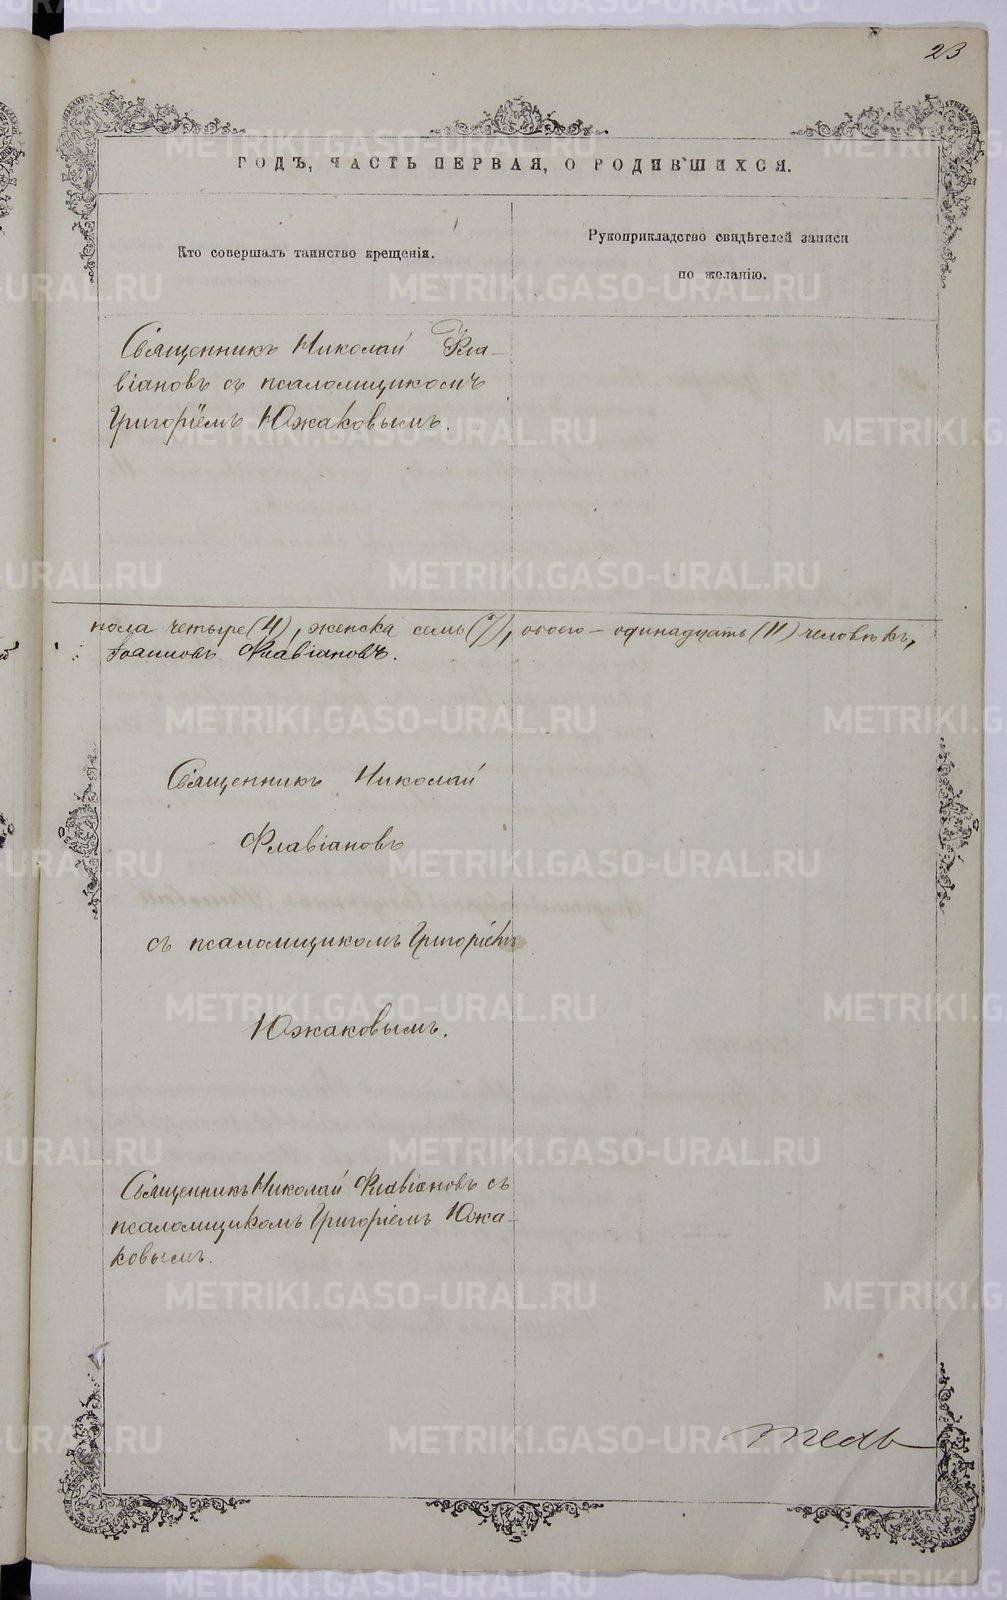 23
ГОДЪ, ЧАСТЬ ПЕРВАЯ, О РОДИВШИХСЯ.
Кто совершалъ таинство крещенія.
Рукоприкладство свидѣтелей записи
по желанію.
Священникъ Николай Фла-
віановъ съ псаломщикомъ
Григоріемъ Южаковымъ.
пола четыре (4), женска семь (7), обоего - одинадцать (11) человѣкъ,
Іоанновъ Флавіановъ.
Священникъ Николай
Флавіановъ
съ псаломщикомъ Григоріемъ
Южаковымъ.
Священникъ Николай Флавіановъ съ
псаломщикомъ Григоріемъ Южа-
ковымъ.
тель
METRIKI.GASO-URAL.RU